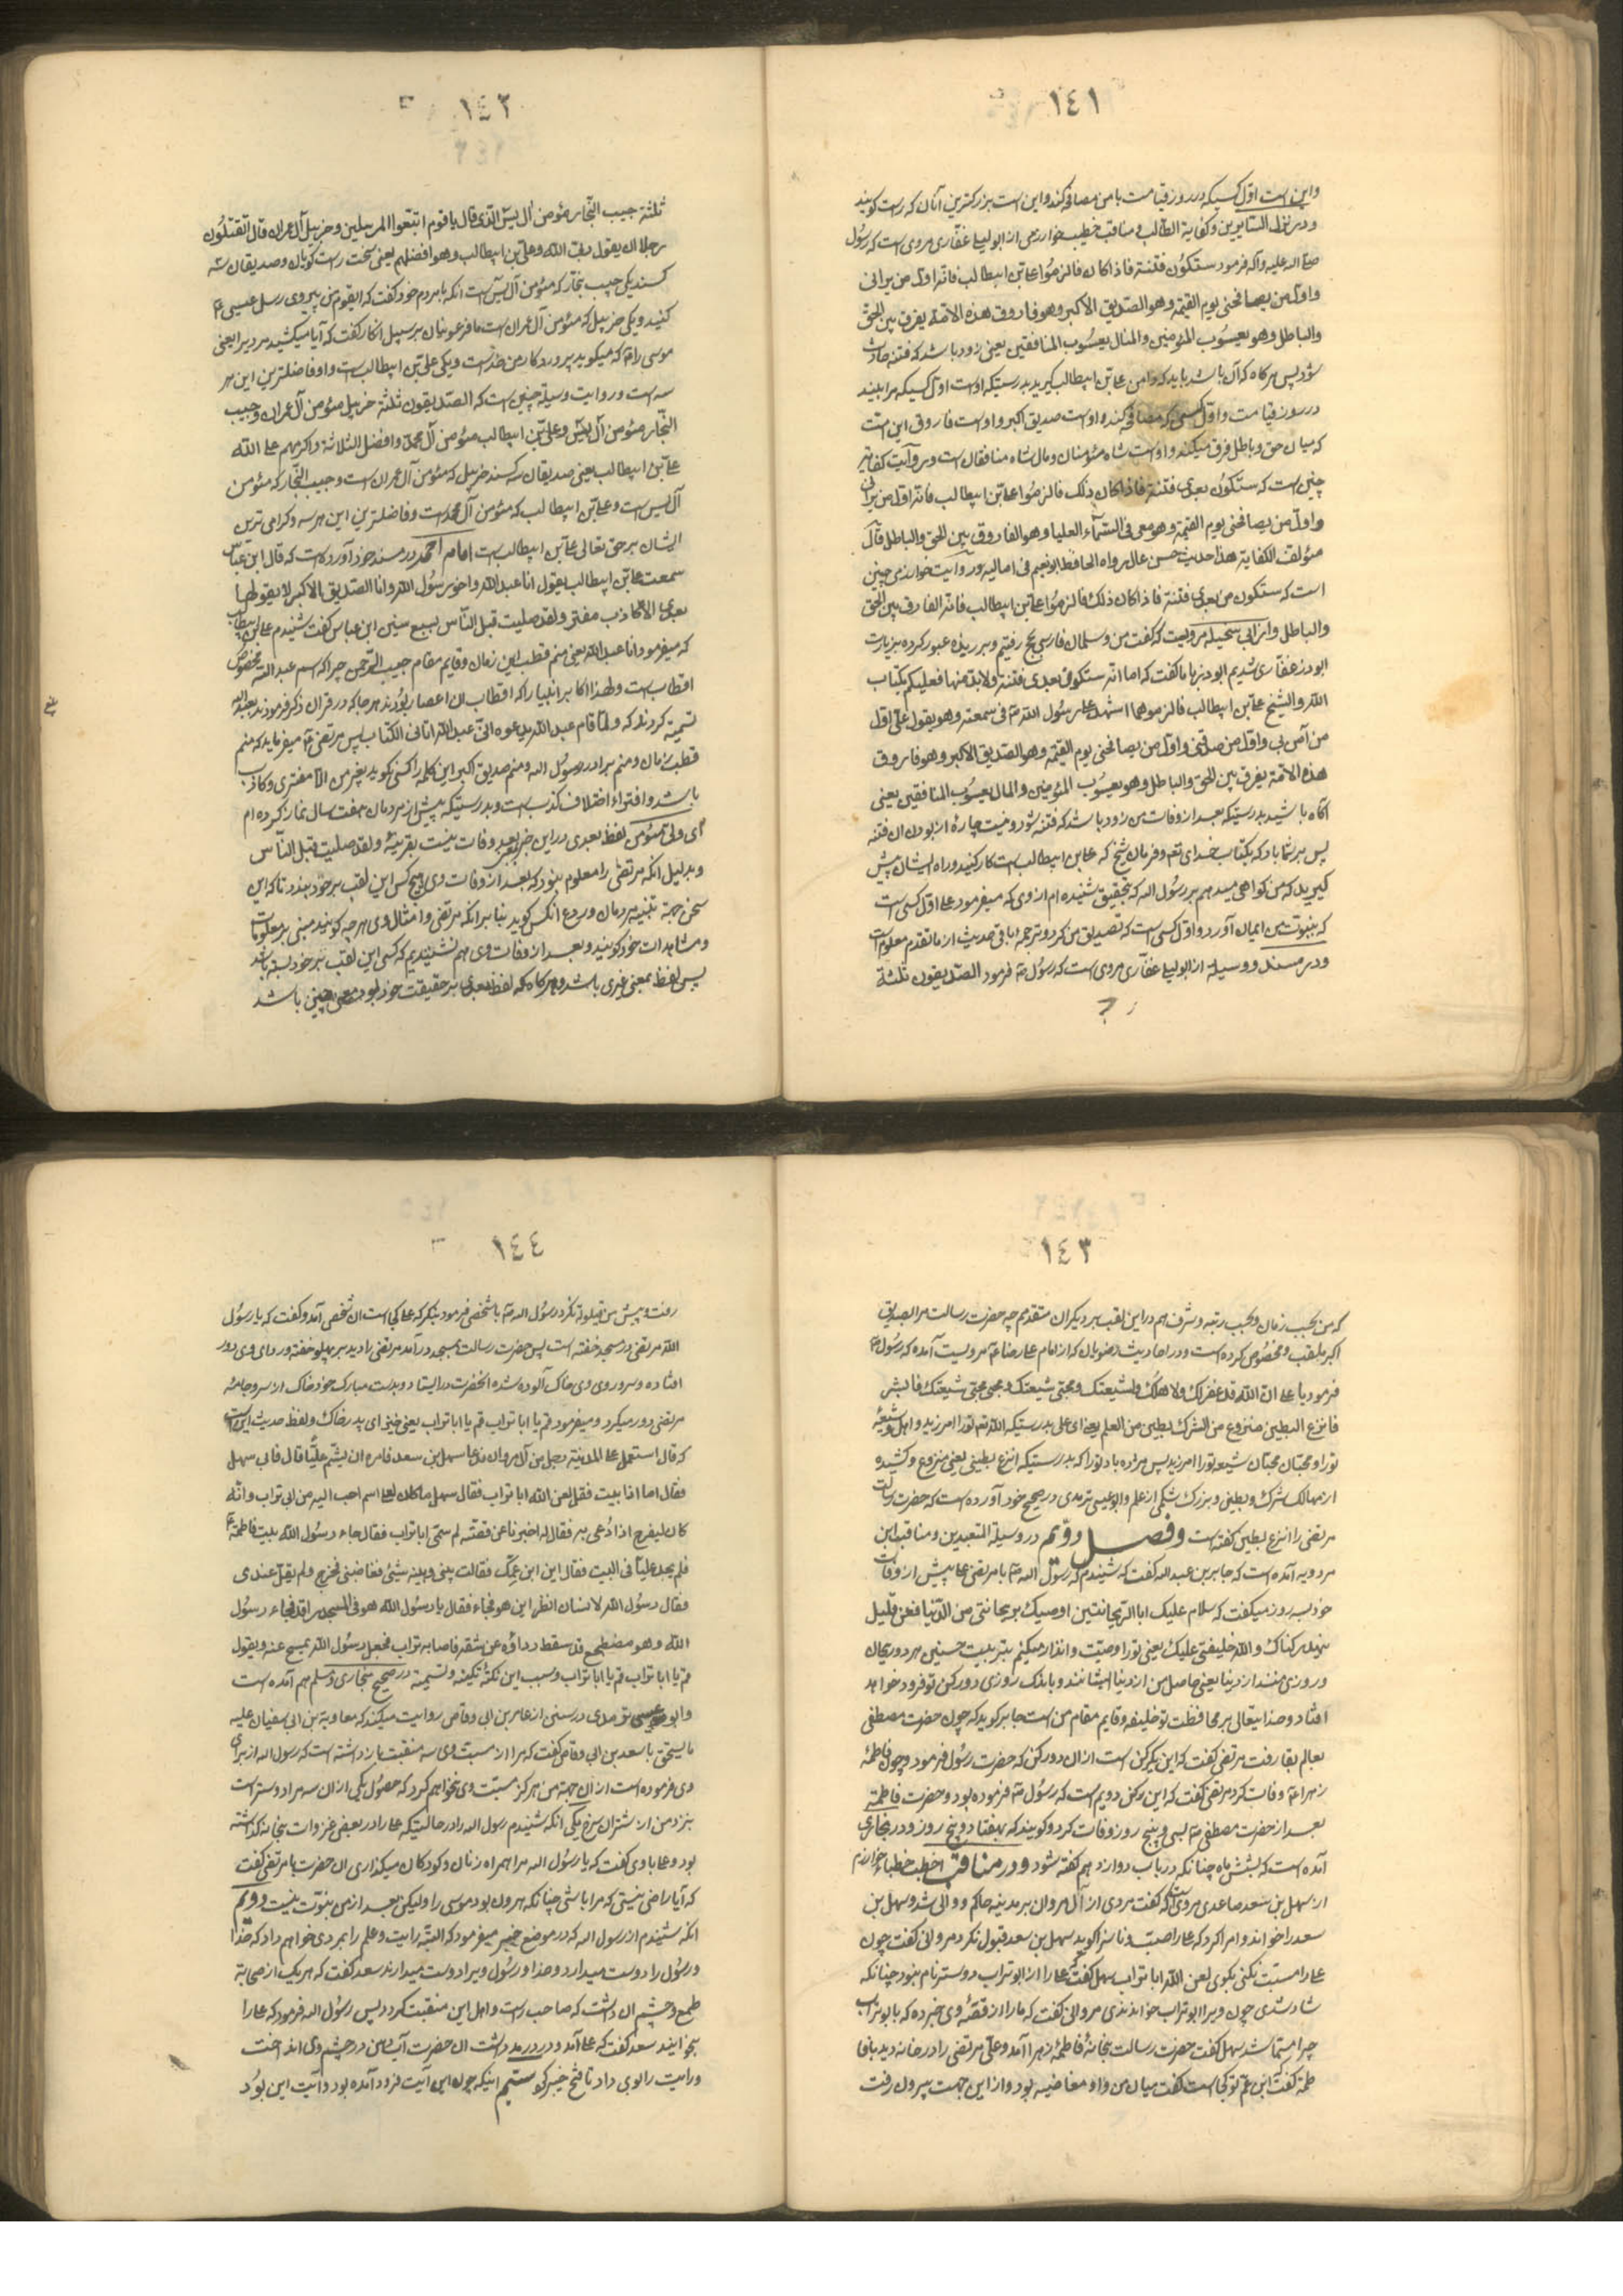 ١٤١
واین است اوّل کسیکه در روز قیامت با من مصافحه کند و این است بزرکترین آنان که راست کویند
و در نزل السّایرین و کفایة الطّالب و مناقب خطیب خوارزمی از ابو لیلی غفّاری مروی است که رسول
صلی الله علیه وآله فرمود ستکون فتنة فاذا کان فالزموا علی بن ابیطالب فانّه اوّل من یرانی
واوّل من یصافحنی یوم القیمة وهو الصّدیق الاکبر وهو فاروق هذه الامّة یفرق بین الحقّ
والباطل وهو یعسوب المؤمنین والمال یعسوب المنافقین یعنی زود باشد که فتنه حادث
شود پس هرکاه که آن باشد باید که دامن علی بن ابیطالب کیرید بدرستیکه اوست اوّل کسیکه مرا بیند
در روز قیامت واوّل کسی که مصافحه کند و اوست صدیق اکبر و اوست فاروق این امّت
که میان حق و باطل فرق میکند و اوست شاه مؤمنان و مال شاه منافقان است و روایت کفایه
چنین است که ستکون بعدی فتنة فاذا کان ذلک فالزموا علی بن ابیطالب فانّه اوّل من یرانی
واوّل من یصافحنی یوم القیمة وهو معی فی السّماء العلیا وهو الفاروق بین الحق والباطل قال
مؤلّف الکفایة هذا حدیث حسن عال رواه الحافظ ابو نعیم فی امالیه و روایت خوارزمی چنین
است که ستکون من بعدی فتنة فاذا کان ذلک فالزموا علی بن ابیطالب فانّه الفارق بین الحق
والباطل و از ابی سخیله مرویست که کفت من و سلمان فارسی بحج رفتیم و بر ربذه عبور کرده بزیارت
ابوذر غفّاری شدیم ابوذر بما کفت که اما انّه ستکون بعدی فتنة ولابدّ منها فعلیکم بکتاب
الله والشیخ علی بن ابیطالب فالزموهما اشهد علی رسول الله ص انی سمعته وهو یقول علیّ اوّل
من آمن بی واوّل من صدّقنی واوّل من یصافحنی یوم القیمة وهو الصدیق الاکبر وهو فاروق
هذه الامّة یفرق بین الحق والباطل وهو یعسوب المؤمنین والمال یعسوب المنافقین یعنی
آکاه باشید بدرستیکه بعد از وفات من زود باشد که فتنه شود و نیست چارهٔ از بودن آن فتنه
پس بر شما باد که بکتاب خدای تع و فرمان شیخ که علی بن ابیطالب است کار کنید و راه ایشان پیش
کیرید که من کواهی میدهم بر رسول الله که بتحقیق شنیده ام از وی که میفرمود علی اوّل کسی است
که بنبوّت من ایمان آورد و اوّل کسی است که تصدیق من کرد و ترجمه باقی حدیث از ما تقدم معلوم است
و در مسند و وسیله از ابو لیلی غفّاری مروی است که رسول ص فرمود الصّدیقون ثلثة
١٤٢
ثلثة حبیب النّجار مؤمن آل یس الّذی قال یا قوم اتبعوا المرسلین و خربیل آل عمران قال اتقتلون
رجلا ان یقول ربّی الله وعلی بن ابیطالب وهو افضلهم یعنی سخت راست کویان و صدیقان سه
کسند یکی حبیب نجّار که مؤمن آل یس است آنکه با مردم خود کفت که ای قوم من پیروی رسل عیسی ع
کنید و یکی خربیل که مؤمن آل عمران است با فرعونیان بر سبیل انکار کفت که آیا میکشید مردیرا یعنی
موسی را که میکوید پروردکار من خداست و یکی علی بن ابیطالب است و او فاضلترین این هر
سه است و روایت وسیله چنین است که الصّدیقون ثلثة خربیل مؤمن آل عمران وحبیب
النّجار مؤمن آل یس وعلی بن ابیطالب مؤمن آل محمّد وافضل الثّلاثة واکرمهم علی الله
علی بن ابیطالب یعنی صدیقان سه کسند خربیل که مؤمن آل عمران است و حبیب النّجار که مؤمن
آل یس است و علی بن ابیطالب که مؤمن آل محمد است و فاضلترین این هر سه و کرامی ترین
ایشان بر حق تعالی علی بن ابیطالب است امام احمد در مسند خود آورده است که قال ابن عبّاس
سمعت علی بن ابیطالب یقول انا عبد الله واخو رسول الله وانا الصّدیق الاکبر لا یقولها
بعدی الّا کاذب مفتر ولقد صلیت قبل النّاس بسبع سنین ابن عباس کفت شنیدم علی بن ابیطالب
که میفرمود انا عبد الله یعنی منم قطب این زمان و قایم مقام حبیب الرّحمن چرا که اسم عبد الله مخصوص
اقطاب است و لهذا اکابر انبیا را که اقطاب آن اعصار بودند هر جا که در قران ذکر فرمودند بعبد الله
تسمیه کردند که ولمّا قام عبد الله یدعوه انّی عبد الله اتانی الکتاب پس مرتضی ع میفرماید که منم
قطب زمان و منم برادر رسول الله و منم صدیق اکبر این کلمه را کسی نکوید بغیر من الّا مفتری و کاذب
باشد و افتراء اختلاف کذب است و بدرستیکه پیش از مردمان هفت سال نماز کرده ام
ای ولی مؤمن لفظ بعدی در این خبر بعد وفات نیست بقرینهٔ ولقد صلیت قبل النّاس
و بدلیل آنکه مرتضی را معلوم بود که بعد از وفات وی هیچ کس این لقب بر خود نبندد تا که این
سخن جهة تنبیه مردمان و ردع آنکس کوید بنا بر آنکه مرتضی و امثال وی هرچه کویند مبنی بر معلومات
و مشاهدات خود کویند و بعد از وفات وی هم نشنیدیم که کسی این لقب بر خود بسته باشد
پس لفظ بمعنی غیری باشد و هرکاه که لفظ بعدی بر حقیقت خود بود معنی چنین باشد
١٤٣
که من بحسب زمان و بحسب رتبه و شرف هم در این لقب بر دیکران متقدمم چه حضرت رسالت مرا بصدیق
اکبر ملقب و مخصوص کرده است و در احادیث رضویان که از امام علی رضا ع مرویست آمده که رسول ع
فرمود یا علی ان الله قد غفر لک ولاهلک ولشیعتک ومحبّی شیعتک ومحبّی محبّی شیعتک فابشر
فانزع البطین منزوع من الشرک بطین من العلم یعنی ای علی بدرستیکه الله تع تو را آمرزید و اهل و شیعهٔ
تو را و محبّان محبّان شیعه تو را آمرزید پس مژده باد تو را که بدرستیکه انزع بطینی یعنی منزوع و کشیده
از مهالک شرک و بطینی و بزرک شکمی از علم و ابو عیسی ترمدی در صحیح خود آورده است که حضرت رسالت
مرتضی را انزع بطین کفته است وفصل دوّیم در وسیلة المتعبدین و مناقب ابن
مردویه آمده است که جابر بن عبد الله کفت که شنیدم که رسول الله ص با مرتضی علی پیش از وفات
خود بسه روز میکفت که سلام علیک ابا الریحانتین اوصیک بریحانتی من الدّنیا فعن قلیل
ینهد رکناک والله خلیفتی علیک یعنی تو را وصیّت و انذار میکنم
افتاد و خدایتعالی بر محافظت تو خلیفه و قایم مقام من است جابر کوید که چون حضرت مصطفی
بعالم بقا رفت مرتضی کفت که این یک رکن است از آن دو رکن که حضرت رسول فرمود و چون فاطمهٔ
زهرا ع وفات کرد مرتضی کفت که این رکن دویم است که رسول ص فرموده بود و حضرت فاطمه
بعد از حضرت مصطفی ص بسی و پنج روز وفات کرد و کویند که بهفتاد و پنج روز و در بخاری
آمده است که بشش ماه چنانکه در باب دوازدهم کفته شود و در مناقب اخطب خطباء خوارزم
از سهل بن سعد ساعدی مرویست که کفت مردی از آل مروان بر مدینه حاکم و والی شد و سهل بن
سعد را خواند و امر کرد که علی را سب و ناسزا کوید سهل بن سعد قبول نکرد مروانی کفت چون
علی را مسبّت نکنی بکوی لعن الله ابا تراب سهل کفت که علی را از ابو تراب دوستر نام نبود چنانکه
شاد شدی چون ویرا ابو تراب خواندندی مروانی کفت که ما را از قصّهٔ وی خبر ده که بابو تراب
چرا مسمّا شد سهل کفت حضرت رسالت بخانهٔ فاطمهٔ زهرا آمد و علی مرتضی را در خانه ندید با فا
طمه کفت ابن عمّ تو کجاست کفت میان من و او مغاضبه بود و از این جهت بیرون رفت
١٤٤
رفت و پیش من قیلوله نکرد رسول الله ص با شخصی فرمود بنکر که علی کجا است آن شخص آمد و کفت که یا رسول
الله مرتضی در مسجد خفته است پس حضرت رسالت بمسجد در آمد مرتضی را دید بر پهلو خفته و ردای وی دور
افتاده و سر و روی وی خاک آلوده شده آنحضرت در ایستاد و بدست مبارک خود خاک از سر و جامهٔ
مرتضی دور میکرد و میفرمود قم یا ابا تراب قم یا ابا تراب یعنی خیز ای پدر خاک و لفظ حدیث این است
که قال استعمل علی المدینة رجل من آل مروان فدعا سهل بن سعد فامره ان یشتم علیّا قال فابی سهل
فقال اما اذا ابیت فقل لعن الله ابا تراب فقال سهل ما کان لعلی اسم احب الیه من ابی تراب وانّه
کان لیفرح اذا دعی به فقال له اخبرنا عن قصّته لم سمّی ابا تراب فقال جاء رسول الله بیت فاطمة ع
فلم یجد علیّا فی البیت فقال این ابن عمّک فقالت بینی وبینه شیئ فغاضبنی فخرج ولم یقل عندی
فقال رسول الله لانسان انظر این هو فجاء فقال یا رسول الله هو فی المسجد راقد فجاء رسول
الله وهو مضطجع قد سقط رداؤه عن شقه فاصابه تراب فجعل رسول الله یمسح عنه ویقول
قم یا ابا تراب قم یا ابا تراب و سبب این تکنیه و تسمیه در صحیح بخاری و مسلم هم آمده است
وابو عیسی ترمدی در سنن از عامر بن ابی وقاص روایت میکند که معاویة بن ابی سفیان علیه
ما یستحق با سعد بن ابی وقاص کفت که مرا از مسبّت وی سه منقبت باز داشته است که رسول الله از برای
وی فرموده است از آن جهة من هرکز مسبّت وی نخواهم کرد که حصول یکی از آن سه مرا دوستر است
بنزد من از شتران سرخ یکی آنکه شنیدم رسول الله را در حالتیکه علی را در بعضی غزوات بخانه کذاشته
بود و علی با وی کفت که یا رسول الله مرا همراه زنان و کودکان میکذاری آن حضرت با مرتضی کفت
که آیا راضی نیستی که مرا باشی چنانکه هرون بود موسی را ولیکن بعد از من بنوّت نیست دوّیم
آنکه شنیدم از رسول الله که در موضع خیبر میفرمود که البتّه رایت و علم را بمردی خواهم داد که خدا
و رسول را دوست میدارد و خدا و رسول ویرا دوست میدارند سعد کفت که هر یک از صحابة
طمع و چشم آن داشت که صاحب رایت و اهل این منقبت کردد پس رسول الله فرمود که علی را
بخوانید سعد کفت که علی آمد و درد رمد داشت آن حضرت آب دهن در چشم وی انداخت
و رایت را بوی داد تا فتح خیبر کرد سیّم اینکه چون این آیت فرود آمده بود و آیت این بود